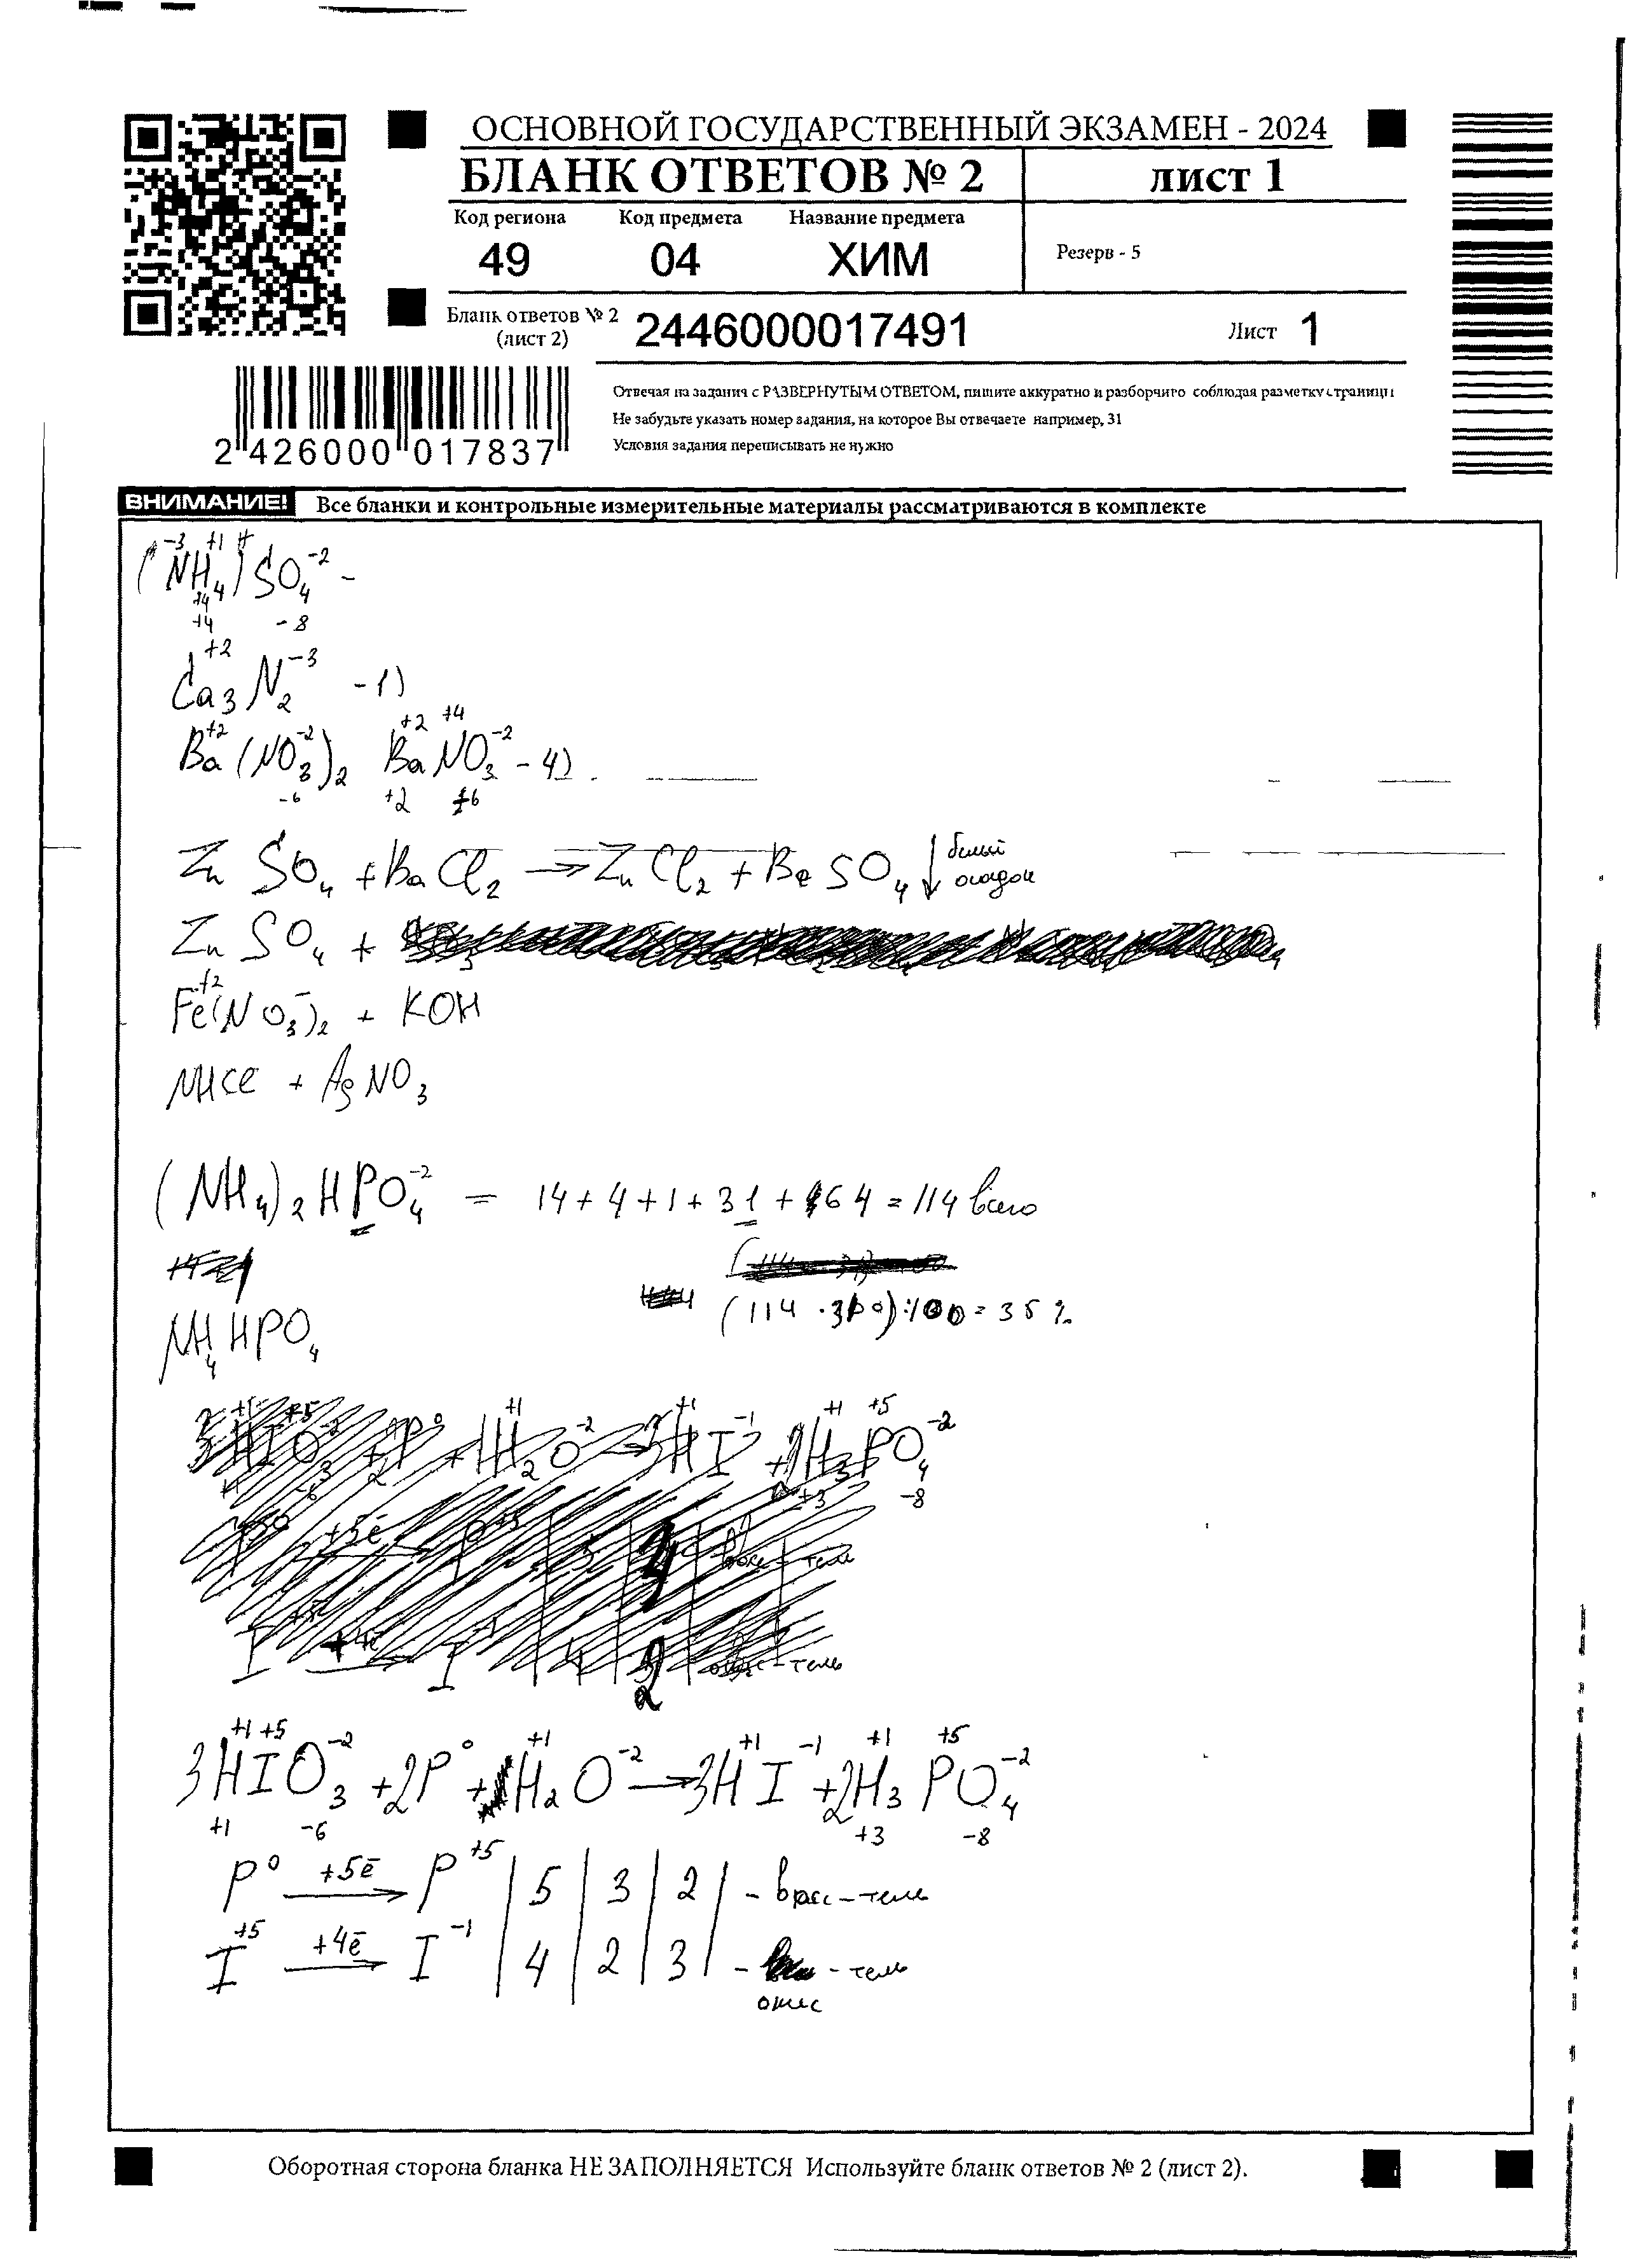 ОСНОВНОЙ ГОСУДАРСТВЕННЫЙ ЭКЗАМЕН - 2024
БЛАНК ОТВЕТОВ № 2
лист 1
Код региона Код предмета Название предмета
49 04 ХИМ
Резерв - 5
Бланк ответов № 2
(лист 2)
2446000017491
Лист 1
2 426000 017837
Отвечая на задания с РАЗВЕРНУТЫМ ОТВЕТОМ, пишите аккуратно и разборчиво соблюдая разметку страницы
Не забудьте указать номер задания, на которое Вы отвечаете например, 31
Условия задания переписывать не нужно
ВНИМАНИЕ! Все бланки и контрольные измерительные материалы рассматриваются в комплекте
-3 +1 -2
(NH4)SO4 -
+4 -8
+2 -3
Ca3N2 -1)
+2 -2 +2 +4 -2
Ba(NO3)2 BaNO3 - 4)
-6 +2 6
ZnSO4 + BaCl2 → ZnCl2 + BaSO4↓ белый осадок
ZnSO4 +
+2 -
Fe(NO3)2 + KOH
+ AgNO3
(NH4)2HPO4 -2 = 14+4+1+31+64=114 всего
(114 · 310):100=35%
NH4HPO4
+1 +1 +1 +5
-2 -1 -2
H2O HI H3PO4
+3 -8
+1 +5 -2 0 +1 -2 +1 -1 +1 +5 -2
3HIO3 + 2P + H2O → 3HI + 2H3PO4
+1 -6 +3 -8
P0 +5ē → P+5 | 5 | 3 | 2 | - восс-тель
I+5 +4ē → I-1 | 4 | 2 | 3 | - -тель
окис
Оборотная сторона бланка НЕ ЗАПОЛНЯЕТСЯ Используйте бланк ответов № 2 (лист 2).